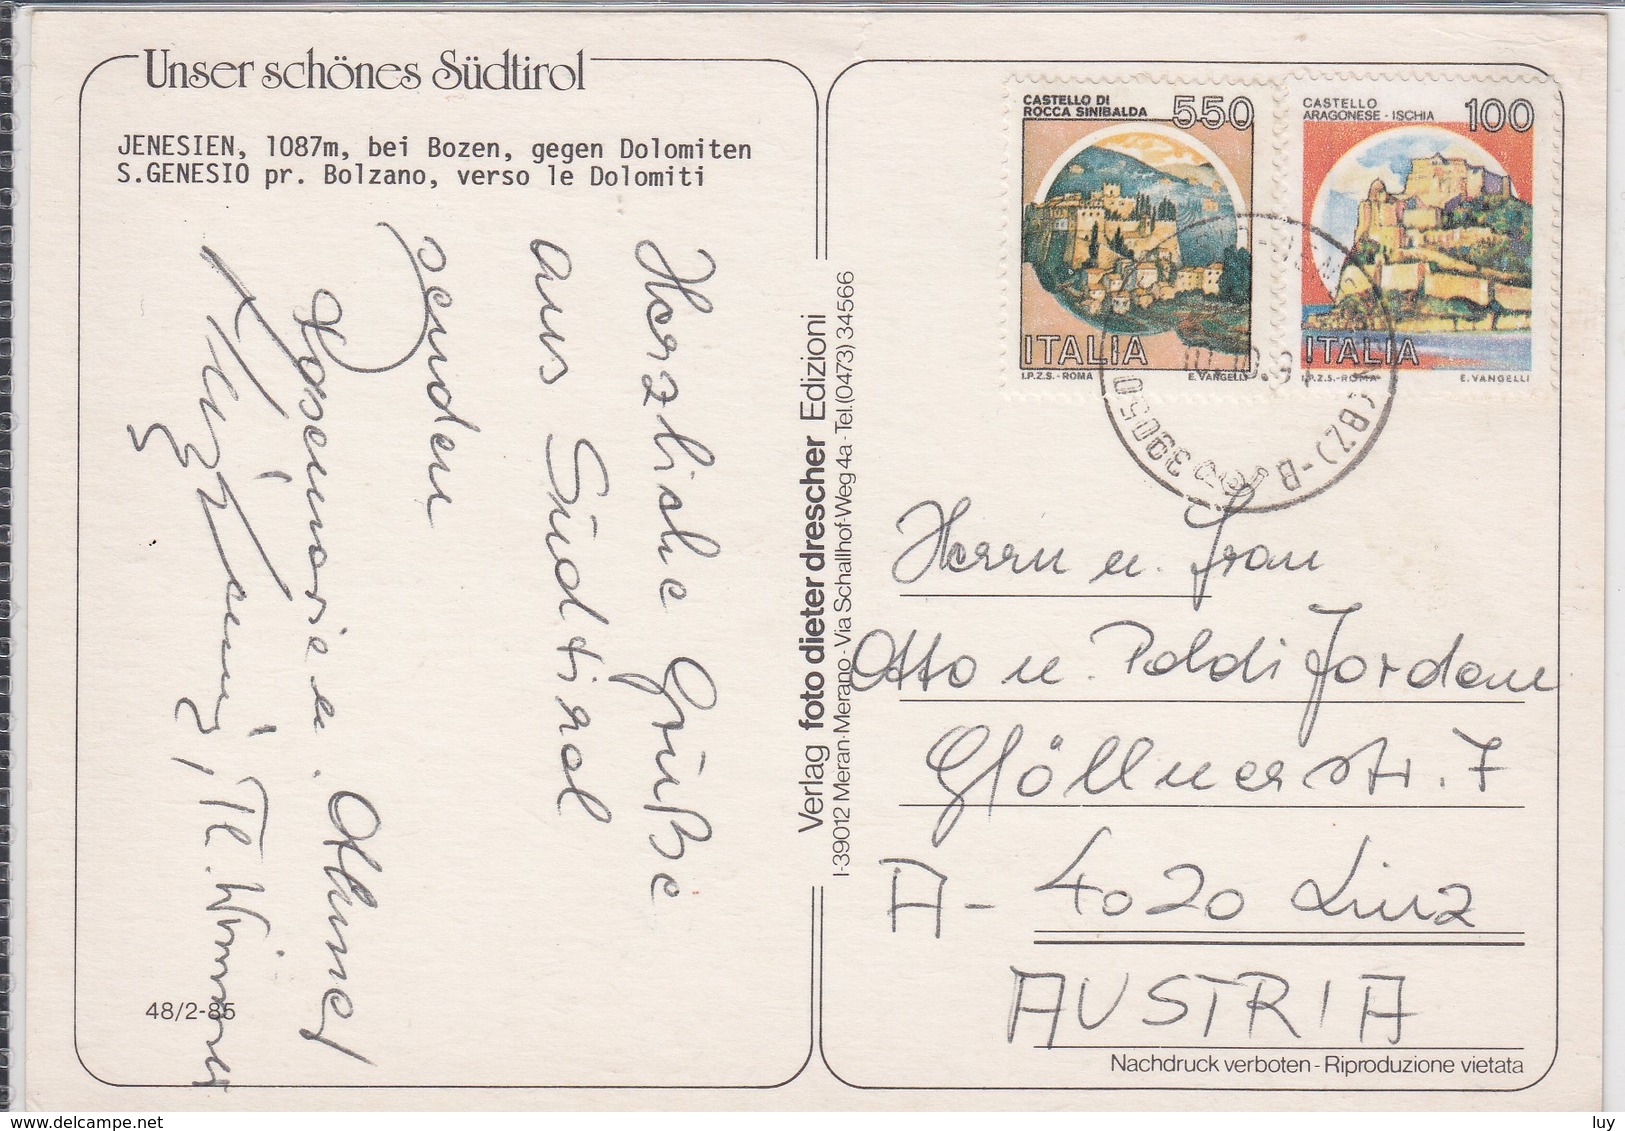 Unser schönes Südtirol
JENESIEN, 1087m, bei Bozen, gegen Dolomiten
S.GENESIO pr. Bolzano, verso le Dolomiti
Herzliche Grüße
aus Südtirol
senden
Rosemarie u.
48/2-85
Verlag foto dieter drescher Edizioni
I-39012 Meran-Merano-Via Schallhof-Weg 4a-Tel.(0473) 34566
CASTELLO DI
ROCCA SINIBALDA
550
ITALIA
I.P.Z.S.-ROMA E. VANGELLI
CASTELLO
ARAGONESE - ISCHIA
100
ITALIA
I.P.Z.S.-ROMA E. VANGELLI
39050
(BZ)-B
Herrn u. Frau
Otto u. Poldi Jordan
Göllnerstr. 7
A- 4020 Linz
AUSTRIA
Nachdruck verboten - Riproduzione vietata
luy